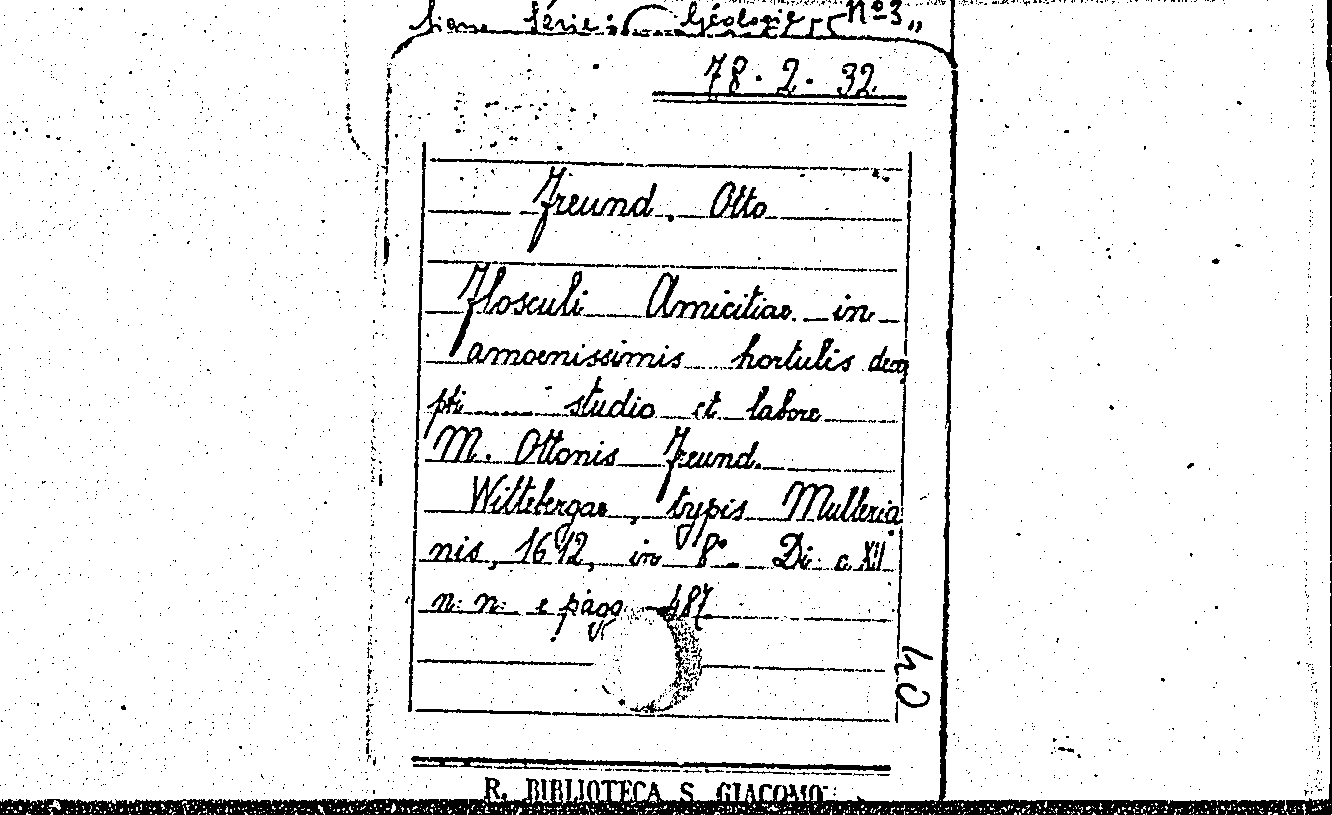 Série: Géologie, nº 3,,
78.2.32
Freund, Otto
Flosculi Amicitiae in
amoenissimis hortulis decer
pti studio et labore
M. Ottonis Freund.
Wittebergae, typis Mulleria
nis, 1612, in 8º. Di c XII
n. n. e pagg. 487
40
R. BIBLIOTECA S. GIACOMO